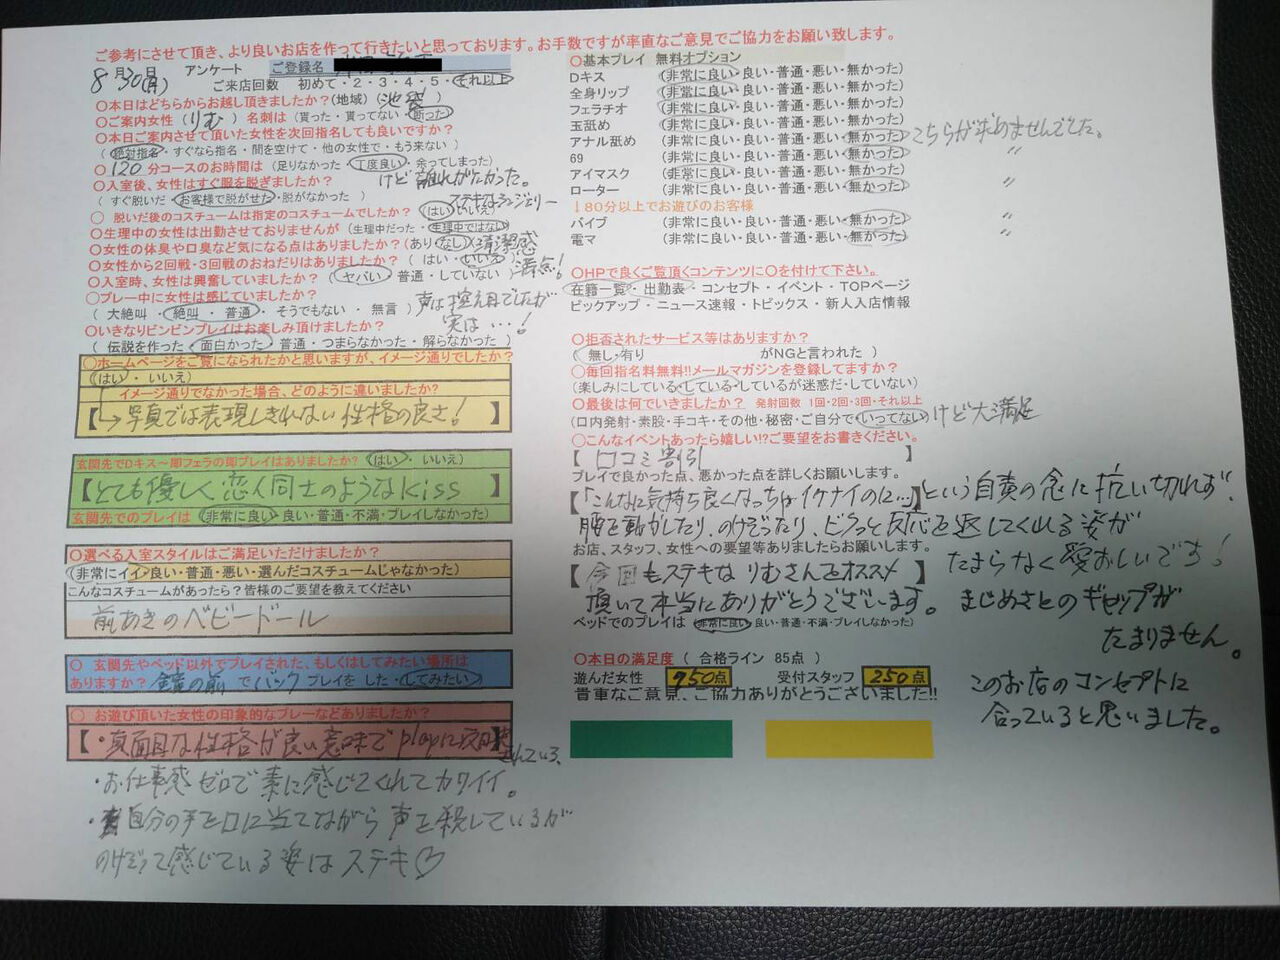 ご参考にさせて頂き、より良いお店を作って行きたいと思っております。お手数ですが率直なご意見でご協力をお願い致します。
8月30日(月) アンケート ご登録名
ご来店回数 初めて・2・3・4・5・それ以上
〇本日はどちらからお越し頂きましたか?(地域)(池袋)
〇ご案内女性(りむ)名刺は(貰った・貰ってない・断った)
〇本日ご案内させて頂いた女性を次回指名しても良いですか?
(絶対指名・すぐなら指名・間を空けて・他の女性で・もう来ない)
〇120分コースのお時間は(足りなかった・丁度良い・余ってしまった)
けど離れがたかった。
〇入室後、女性はすぐ服を脱ぎましたか?
(すぐ脱いだ・お客様で脱がせた・脱がなかった)
ステキなランジェリー
〇 脱いだ後のコスチュームは指定のコスチュームでしたか?(はい・いいえ)
〇生理中の女性は出勤させておりませんが(生理中だった・生理中ではない)
〇女性の体臭や口臭など気になる点はありましたか?(あり・なし)清潔感
〇女性から2回戦・3回戦のおねだりはありましたか?(はい・いいえ)満点!
〇入室時、女性は興奮していましたか?(ヤバい 普通・していない)
〇プレー中に女性は感じていましたか?
(大絶叫・絶叫・普通・そうでもない・無言)声は控え目でしたが
実は…!
〇いきなりビンビンプレイはお楽しみ頂けましたか?
(伝説を作った・面白かった・普通・つまらなかった・解らなかった)
〇ホームページをご覧になられたかと思いますが、イメージ通りでしたか?
(はい・いいえ)
イメージ通りでなかった場合、どのように違いましたか?
【→写真では表現しきれない性格の良さ!】
玄関先でDキス〜即フェラの即プレイはありましたか?(はい・いいえ)
【とても優しく恋人同士のようなKiss】
玄関先でのプレイは(非常に良い・良い・普通・不満・プレイしなかった)
〇選べる入室スタイルはご満足いただけましたか?
(非常にイイ・良い・普通・悪い・選んだコスチュームじゃなかった)
こんなコスチュームがあったら?皆様のご要望を教えてください
前あきのベビードール
〇 玄関先やベッド以外でプレイされた、もしくはしてみたい場所は
ありますか?鏡の前でバックプレイをした・してみたい)
〇 お遊び頂いた女性の印象的なプレーなどありましたか?
【・真面目な性格が良い意味でplayに反映】されている、
・お仕事感ゼロで素に感じてくれてカワイイ。
・自分の手を口に当てながら声を殺しているが
のけぞって感じている姿はステキ♡
〇基本プレイ 無料オプション
Dキス (非常に良い・良い・普通・悪い・無かった)
全身リップ (非常に良い・良い・普通・悪い・無かった)
フェラチオ (非常に良い・良い・普通・悪い・無かった)
玉舐め (非常に良い・良い・普通・悪い・無かった)
アナル舐め (非常に良い・良い・普通・悪い・無かった)こちらが求めませんでした。
69 (非常に良い・良い・普通・悪い・無かった) 〃
アイマスク (非常に良い・良い・普通・悪い・無かった)
ローター (非常に良い・良い・普通・悪い・無かった) 〃
↓80分以上でお遊びのお客様
バイブ (非常に良い・良い・普通・悪い・無かった) 〃
電マ (非常に良い・良い・普通・悪い・無かった) 〃
〇HPで良くご覧頂くコンテンツに〇を付けて下さい。
在籍一覧・出勤表・コンセプト・イベント・TOPページ
ピックアップ・ニュース速報・トピックス・新人入店情報
〇拒否されたサービス等はありますか?
(無し・有り がNGと言われた )
〇毎回指名料無料!!メールマガジンを登録してますか?
(楽しみにしている・している・しているが迷惑だ・していない)
〇最後は何でいきましたか? 発射回数 1回・2回・3回・それ以上
(口内発射・素股・手コキ・その他・秘密・ご自分で・いってない)けど大満足
〇こんなイベントあったら嬉しい!?ご要望をお書きください。
【 口コミ割引 】
プレイで良かった点、悪かった点を詳しくお願いします。
【「こんなに気持ち良くなっちゃイケナイのに…」】という自責の念に抗い切れず、
腰を動かしたり、のけぞったり、ビクっと反応を返してくれる姿が
たまらなく愛おしいです!
まじめさとのギャップが
たまりません。
お店、スタッフ、女性への要望等ありましたらお願いします。
【今回もステキなりむさんをオススメ】
頂いて本当にありがとうございます。
このお店のコンセプトに
合っていると思いました。
ベッドでのプレイは(非常に良い・良い・普通・不満・プレイしなかった)
〇本日の満足度(合格ライン 85点)
遊んだ女性 950点 受付スタッフ 250点
貴重なご意見、ご協力ありがとうございました!!